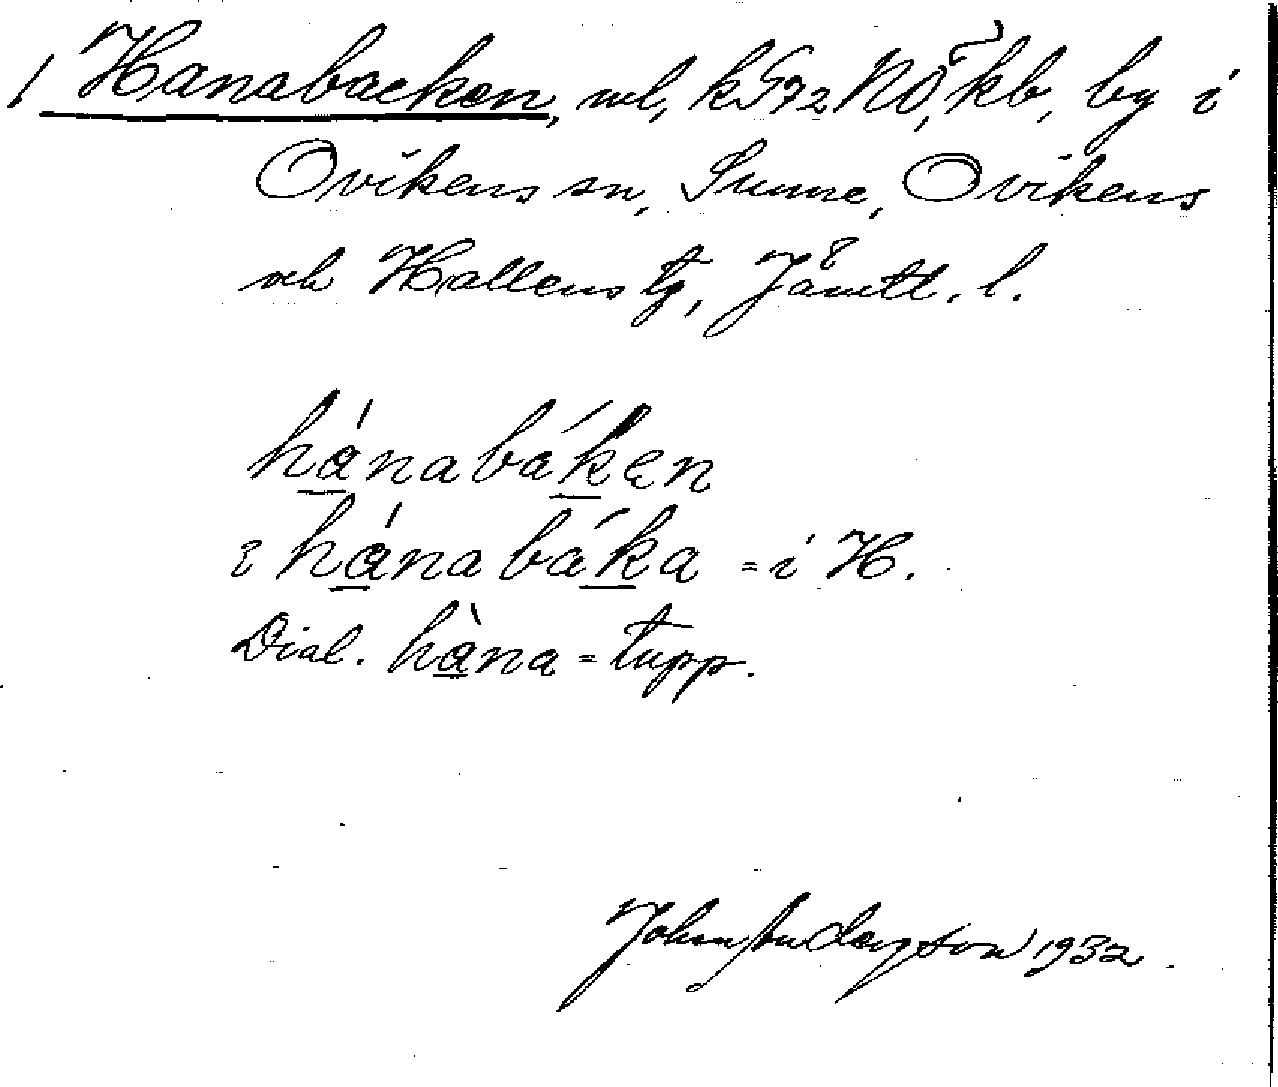 1 Hanabacken, vel, k572 NÖ, kb, by i
Ovikens sn, Sunne, Ovikens
och Hallens tg, Jämtl. l.
hánabáken
i hánabáka = i H.
Dial. hàna = tupp.
John Andersson 1932.